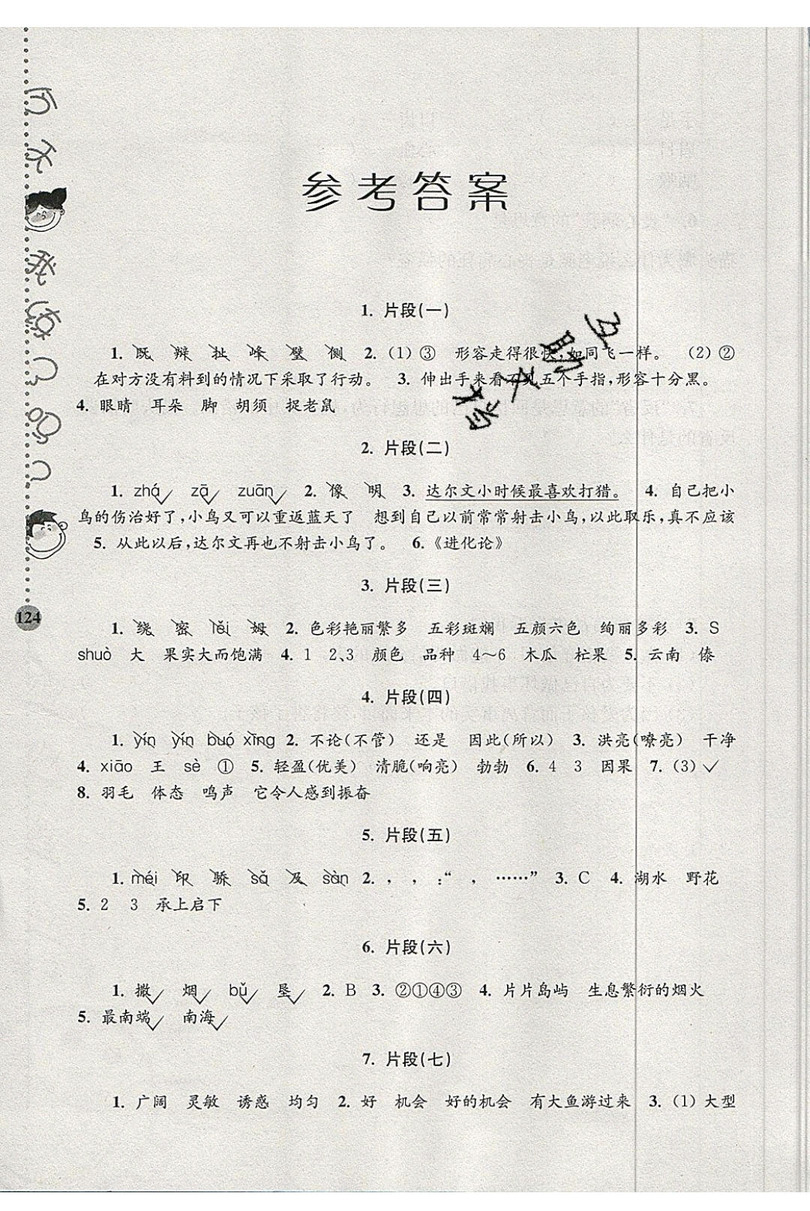 参考答案
1. 片段(一)
1. 既 辩 扯 峰 璧 侧 2. (1) ③ 形容走得很快,如同飞一样。 (2) ②
在对方没有料到的情况下采取了行动。 3. 伸出手来看不见五个手指,形容十分黑。
4. 眼睛 耳朵 脚 胡须 捉老鼠
2. 片段(二)
1. zhá zā zuān 2. 像 明 3. 达尔文小时候最喜欢打猎。 4. 自己把小
鸟的伤治好了,小鸟又可以重返蓝天了 想到自己以前常常射击小鸟,以此取乐,真不应该
5. 从此以后,达尔文再也不射击小鸟了。 6.《进化论》
3. 片段(三)
1. 绕 密 lěi 姆 2. 色彩艳丽繁多 五彩斑斓 五颜六色 绚丽多彩 3. S
shuò 大 果实大而饱满 4. 1 2,3 颜色 品种 4~6 木瓜 杧果 5. 云南 傣
124
4. 片段(四)
1. yín yín buó xing 2. 不论(不管) 还是 因此(所以) 3. 洪亮(嘹亮) 干净
4. xiāo 王 sè ① 5. 轻盈(优美) 清脆(响亮) 勃勃 6. 4 3 因果 7. (3)✓
8. 羽毛 体态 鸣声 它令人感到振奋
5. 片段(五)
1. méi 印 骄 sǎ 及 sàn 2. , , :“ , ……” 3. C 4. 湖水 野花
5. 2 3 承上启下
6. 片段(六)
1. 撒 烟 bǔ 垦 2. B 3. ②①④③ 4. 片片岛屿 生息繁衍的烟火
5. 最南端 南海
7. 片段(七)
1. 广阔 灵敏 诱惑 均匀 2. 好 机会 好的机会 有大鱼游过来 3. (1) 大型